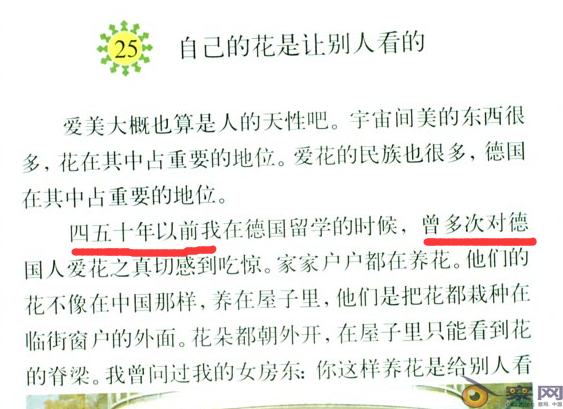 25 自己的花是让别人看的
爱美大概也算是人的天性吧。宇宙间美的东西很
多，花在其中占重要的地位。爱花的民族也很多，德国
在其中占重要的地位。
四五十年以前我在德国留学的时候，曾多次对德
国人爱花之真切感到吃惊。家家户户都在养花。他们的
花不像在中国那样，养在屋子里，他们是把花都栽种在
临街窗户的外面。花朵都朝外开，在屋子里只能看到花
的脊梁。我曾问过我的女房东：你这样养花是给别人看